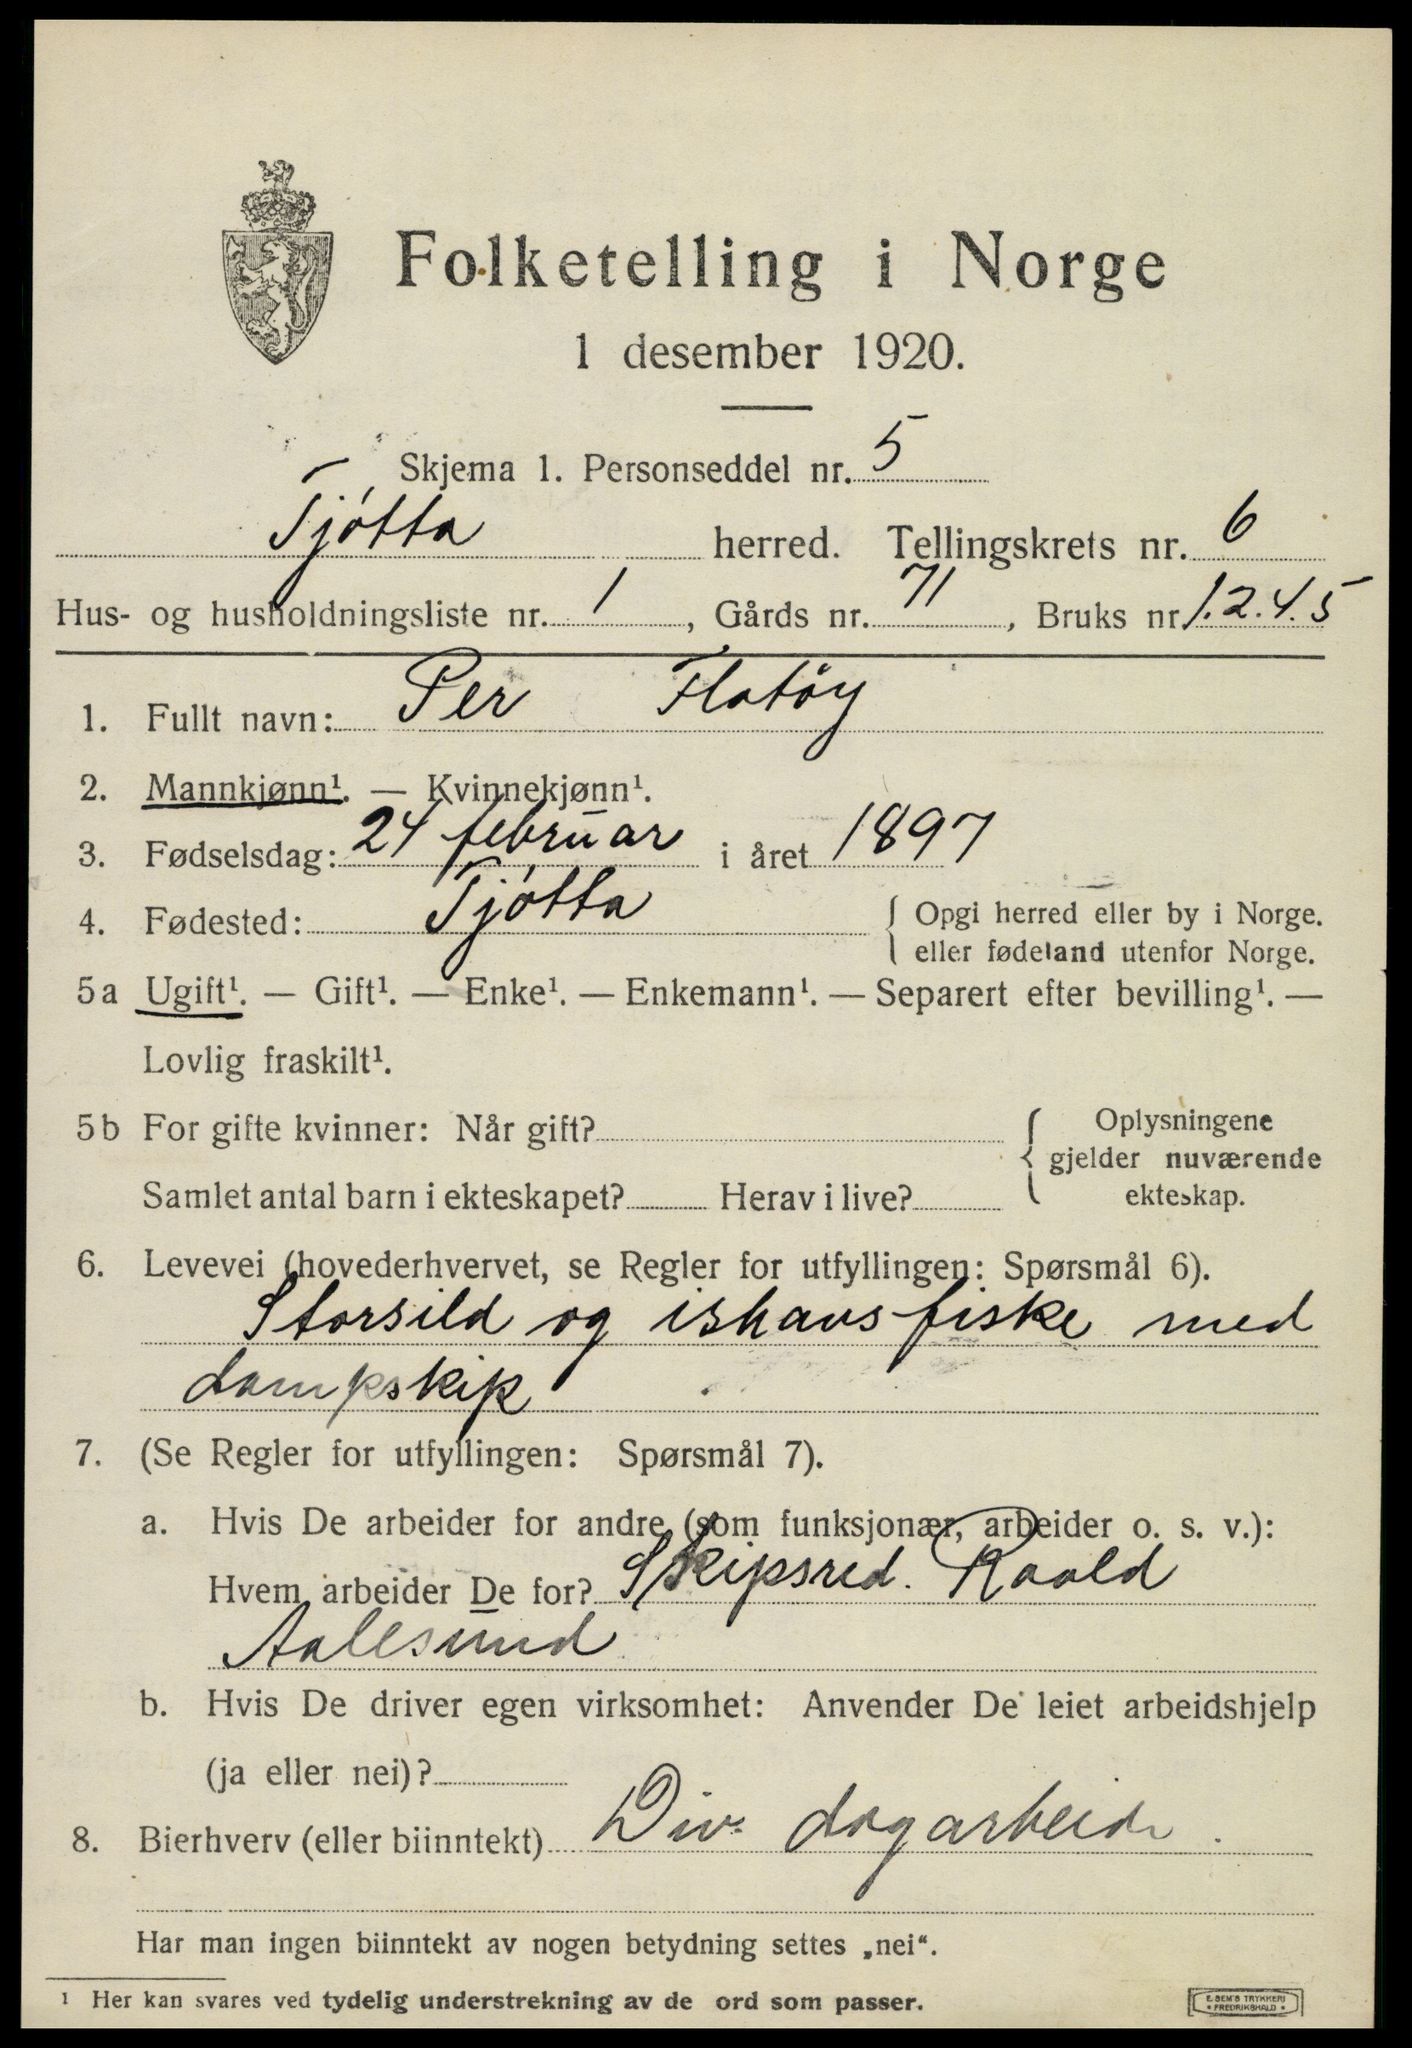 Folketelling i Norge
1 desember 1920.
Skjema 1. Personseddel nr. 5
Tjøtta herred. Tellingskrets nr. 6
Hus- og husholdningsliste nr. 1, Gårds nr. 71, Bruks nr 1.2.4.5
1. Fullt navn: Per Flatøy
2. Mannkjønn¹. — Kvinnekjønn¹.
3. Fødselsdag: 24 februar i året 1897
4. Fødested: Tjøtta { Opgi herred eller by i Norge.
eller fødeland utenfor Norge.
5a Ugift¹. — Gift¹. — Enke¹. — Enkemann¹. — Separert efter bevilling¹. —
Lovlig fraskilt¹.
5b For gifte kvinner: Når gift?
Samlet antal barn i ekteskapet? Herav i live?
{ Oplysningene
gjelder nuværende
ekteskap.
6. Levevei (hovederhvervet, se Regler for utfyllingen: Spørsmål 6).
Storsild og ishavsfiske med
dampskip
7. (Se Regler for utfyllingen: Spørsmål 7).
a. Hvis De arbeider for andre (som funksjonær, arbeider o. s. v.):
Hvem arbeider De for? Skipsred. Roald
Aalesund
b. Hvis De driver egen virksomhet: Anvender De leiet arbeidshjelp
(ja eller nei)?
8. Bierhverv (eller biinntekt) Div. dagarbeide.
Har man ingen biinntekt av nogen betydning settes „nei“.
¹ Her kan svares ved tydelig understrekning av de ord som passer.
E. SEM'S TRYKKERI
• FREDRIKSHALD •